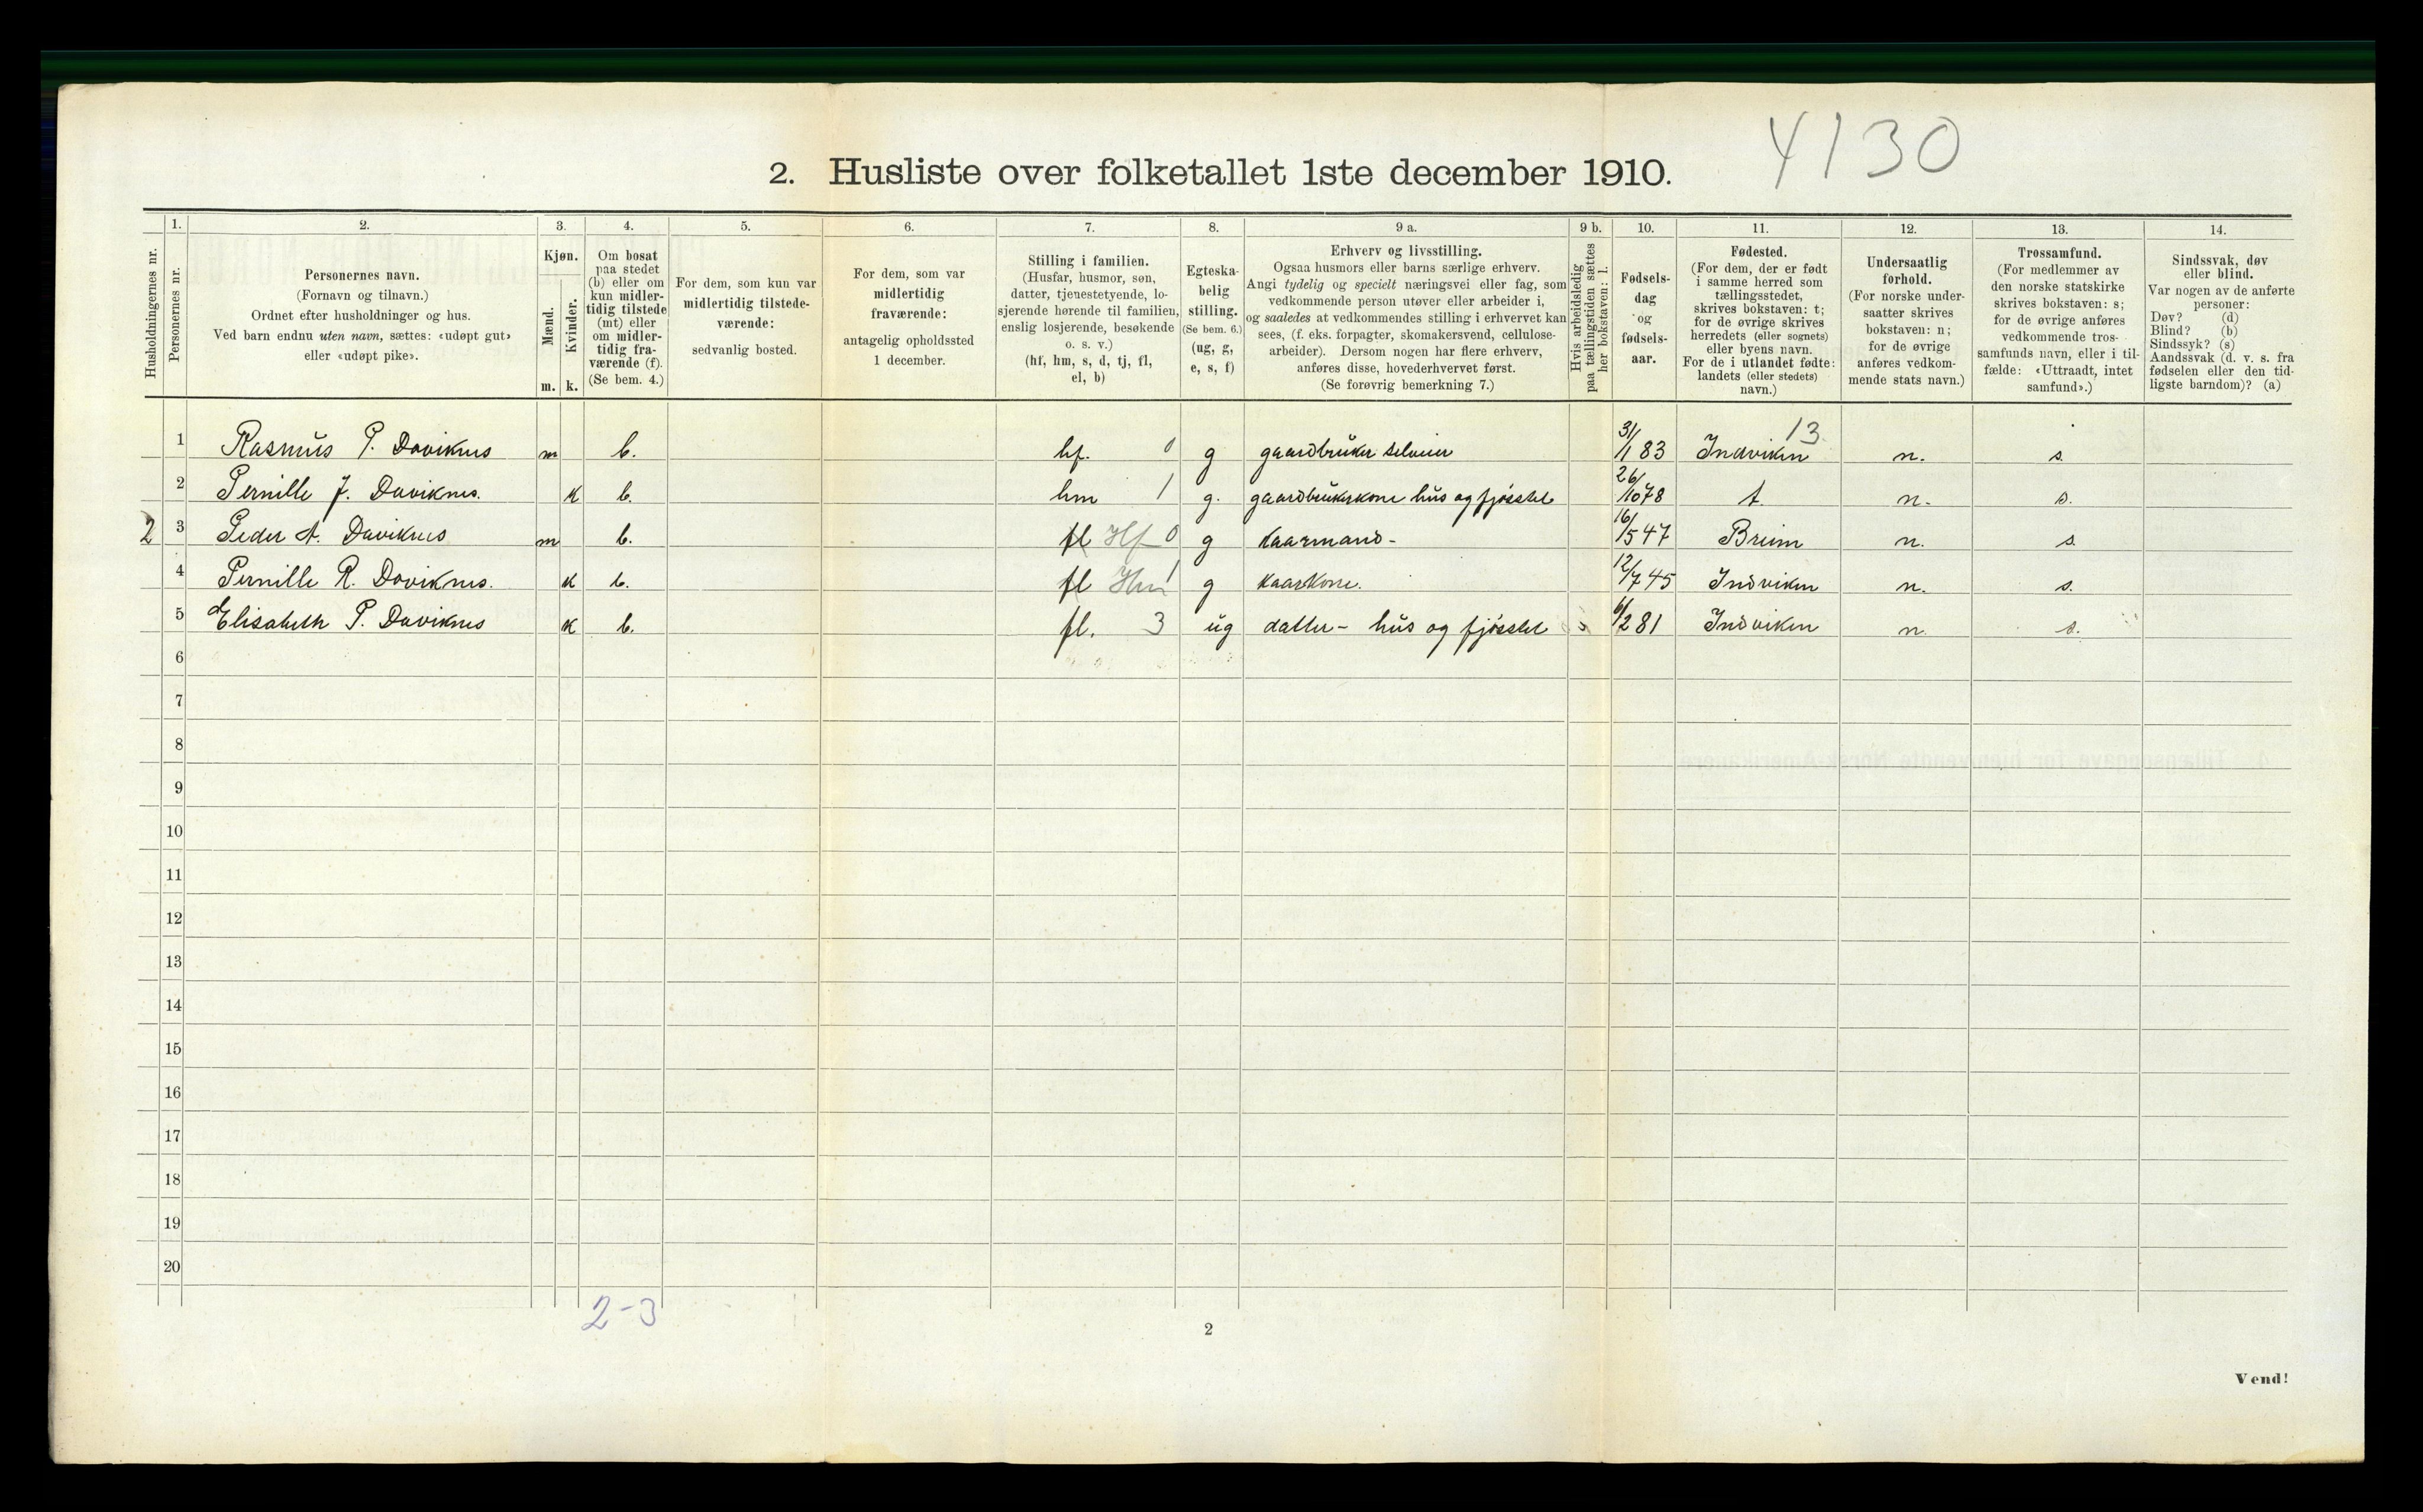 4130
2. Husliste over folketallet 1ste december 1910.
Husholdningernes nr.
1.
Personernes nr.
2.
Personernes navn.
(Fornavn og tilnavn.)
Ordnet efter husholdninger og hus.
Ved barn endnu uten navn, sættes: «udøpt gut»
eller «udøpt pike».
3.
Kjøn.
Mænd.
Kvinder.
m. k.
4.
Om bosat
paa stedet
(b) eller om
kun midler-
tidig tilstede
(mt) eller
om midler-
tidig fra-
værende (f).
(Se bem. 4.)
5.
For dem, som kun var
midlertidig tilstede-
værende:
sedvanlig bosted.
6.
For dem, som var
midlertidig
fraværende:
antagelig opholdssted
1 december.
7.
Stilling i familien.
(Husfar, husmor, søn,
datter, tjenestetyende, lo-
sjerende hørende til familien,
enslig losjerende, besøkende
o. s. v.)
(hf, hm, s, d, tj, fl,
el, b)
8.
Egteska-
belig
stilling.
(Se bem. 6.)
(ug, g,
e, s, f)
9 a.
Erhverv og livsstilling.
Ogsaa husmors eller barns særlige erhverv.
Angi tydelig og specielt næringsvei eller fag, som
vedkommende person utøver eller arbeider i,
og saaledes at vedkommendes stilling i erhvervet kan
sees, (f. eks. forpagter, skomakersvend, cellulose-
arbeider). Dersom nogen har flere erhverv,
anføres disse, hovederhvervet først.
(Se forøvrig bemerkning 7.)
9 b.
Hvis arbeidsledig
paa tællingstiden sættes
her bokstaven: l.
10.
Fødsels-
dag
og
fødsels-
aar.
11.
Fødested.
(For dem, der er født
i samme herred som
tællingsstedet,
skrives bokstaven: t;
for de øvrige skrives
herredets (eller sognets)
eller byens navn.
For de i utlandet fødte:
landets (eller stedets)
navn.)
12.
Undersaatlig
forhold.
(For norske under-
saatter skrives
bokstaven: n;
for de øvrige
anføres vedkom-
mende stats navn.)
13.
Trossamfund.
(For medlemmer av
den norske statskirke
skrives bokstaven: s;
for de øvrige anføres
vedkommende tros-
samfunds navn, eller i til-
fælde: «Uttraadt, intet
samfund».)
14.
Sindssvak, døv
eller blind.
Var nogen av de anførte
personer:
Døv? (d)
Blind? (b)
Sindssyk? (s)
Aandssvak (d. v. s. fra
fødselen eller den tid-
ligste barndom)? (a)
13
1 Rasmus P. Daviknes m b. hf. 0 g gaardbruker selveier 31/1 83 Indviken n. s.
2 Pernille J. Daviknes. k b. hm 1 g. gaardbrukerkone hus og fjøsstel 26/10 78 t. n. s.
2 3 Peder A. Daviknes m b. fl Hf 0 g kaarmand - 16/5 47 Breim n. s.
4 Pernille R. Daviknes. k b. fl Hm 1 g kaarkone. 12/7 45 Indviken n. s.
5 Elisabeth P. Daviknes k b. fl. 3 ug datter - hus og fjøsstel 6/2 81 Indviken n. s.
6
7
8
9
10
11
12
13
14
15
16
17
18
19
20
2-3
2
Vend!